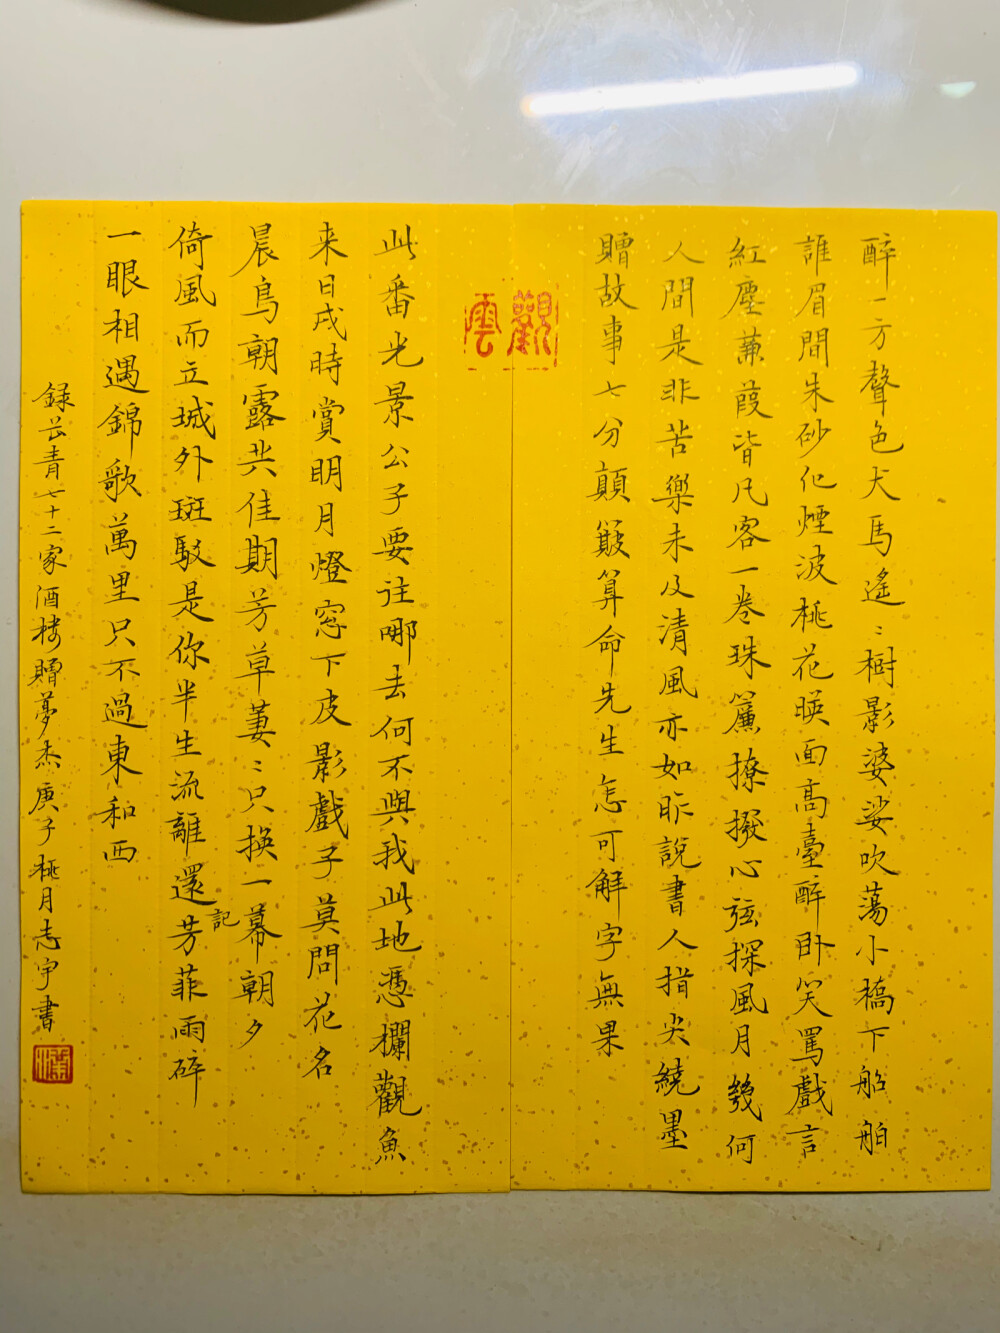 醉一方聲色犬馬遙〻樹影婆娑吹蕩小橋下船舶
誰眉間朱砂化煙波桃花暎面高臺醉卧笑罵戲言
紅塵蒹葭皆凡客一卷珠簾撩撥心弦探風月幾何
人間是非苦樂未及清風亦如昨說書人指尖繞墨
贈故事七分顛簸算命先生怎可解字無果
觀雲
此番光景公子要往哪去何不與我此地憑欄觀魚
来日戌時賞明月燈窓下皮影戲子莫問花名
晨鳥朝露共佳期芳草萋〻只換一幕朝夕
倚風而立城外斑駁是你半生流離還記芳菲雨碎
一眼相遇錦歌萬里只不過東和西
録長青七十二家酒樓贈夢杰庚子桃月志宇書